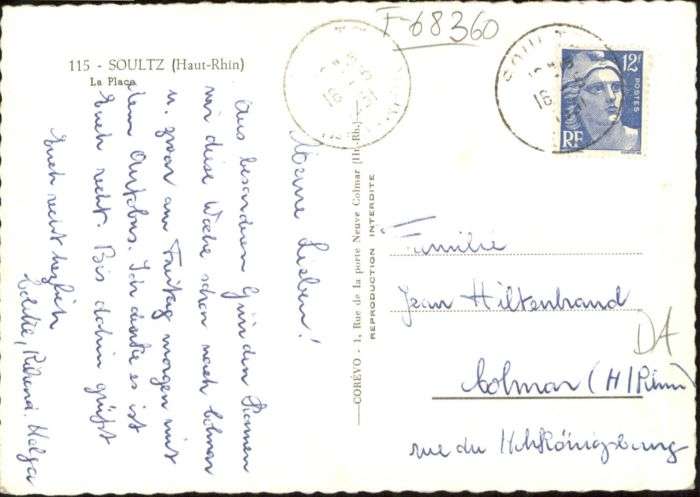 F-68360
115 - SOULTZ (Haut-Rhin)
La Place
Meine Lieben!
Aus besonderen Gründen kommen
wir diese Woche schon nach Colmar
u. zwar am Freitag morgen mit
dem Autobus. Ich denke es ist
Euch recht. Bis dahin grüßt
Euch recht herzlich
Helga
COREVO - 1, Rue de la porte Neuve Colmar (Ht-Rh.)
REPRODUCTION INTERDITE
SOULTZ
12F
POSTES
RF
Familie
Jean Hiltenbrand
Colmar (H/Rhin)
rue du Hohkönigsburg
DA